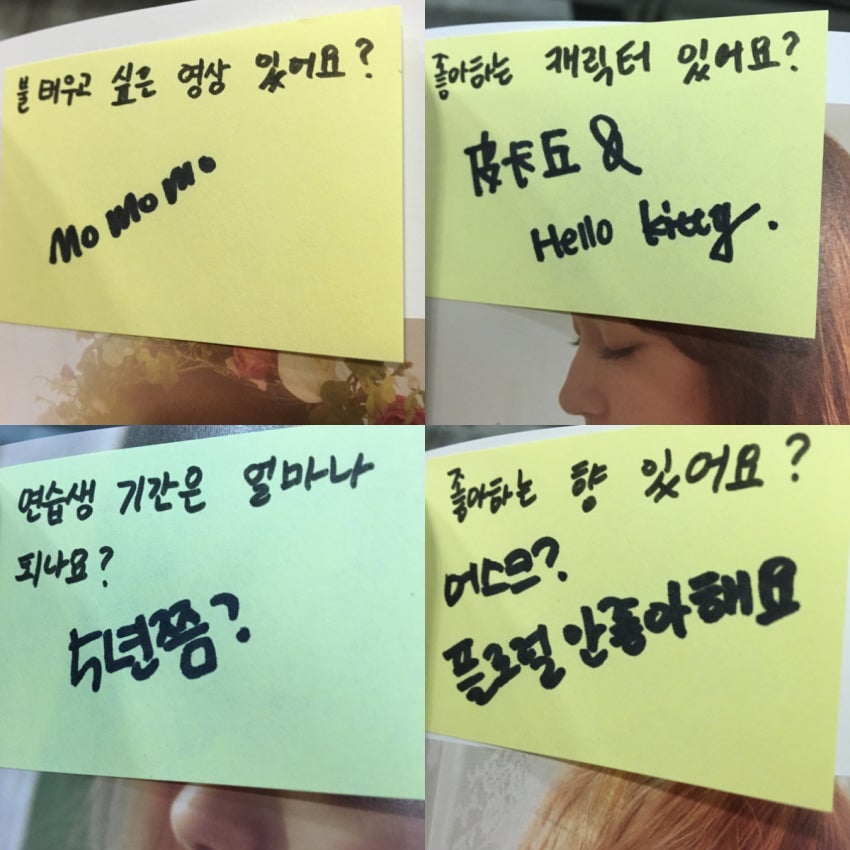 불 태우고 싶은 영상 있어요?
Mo Mo Mo
좋아하는 캐릭터 있어요?
皮卡丘 &
Hello kitty.
연습생 기간은 얼마나
되나요?
5년쯤?
좋아하는 향 있어요?
어스므?
플로럴 안좋아해요